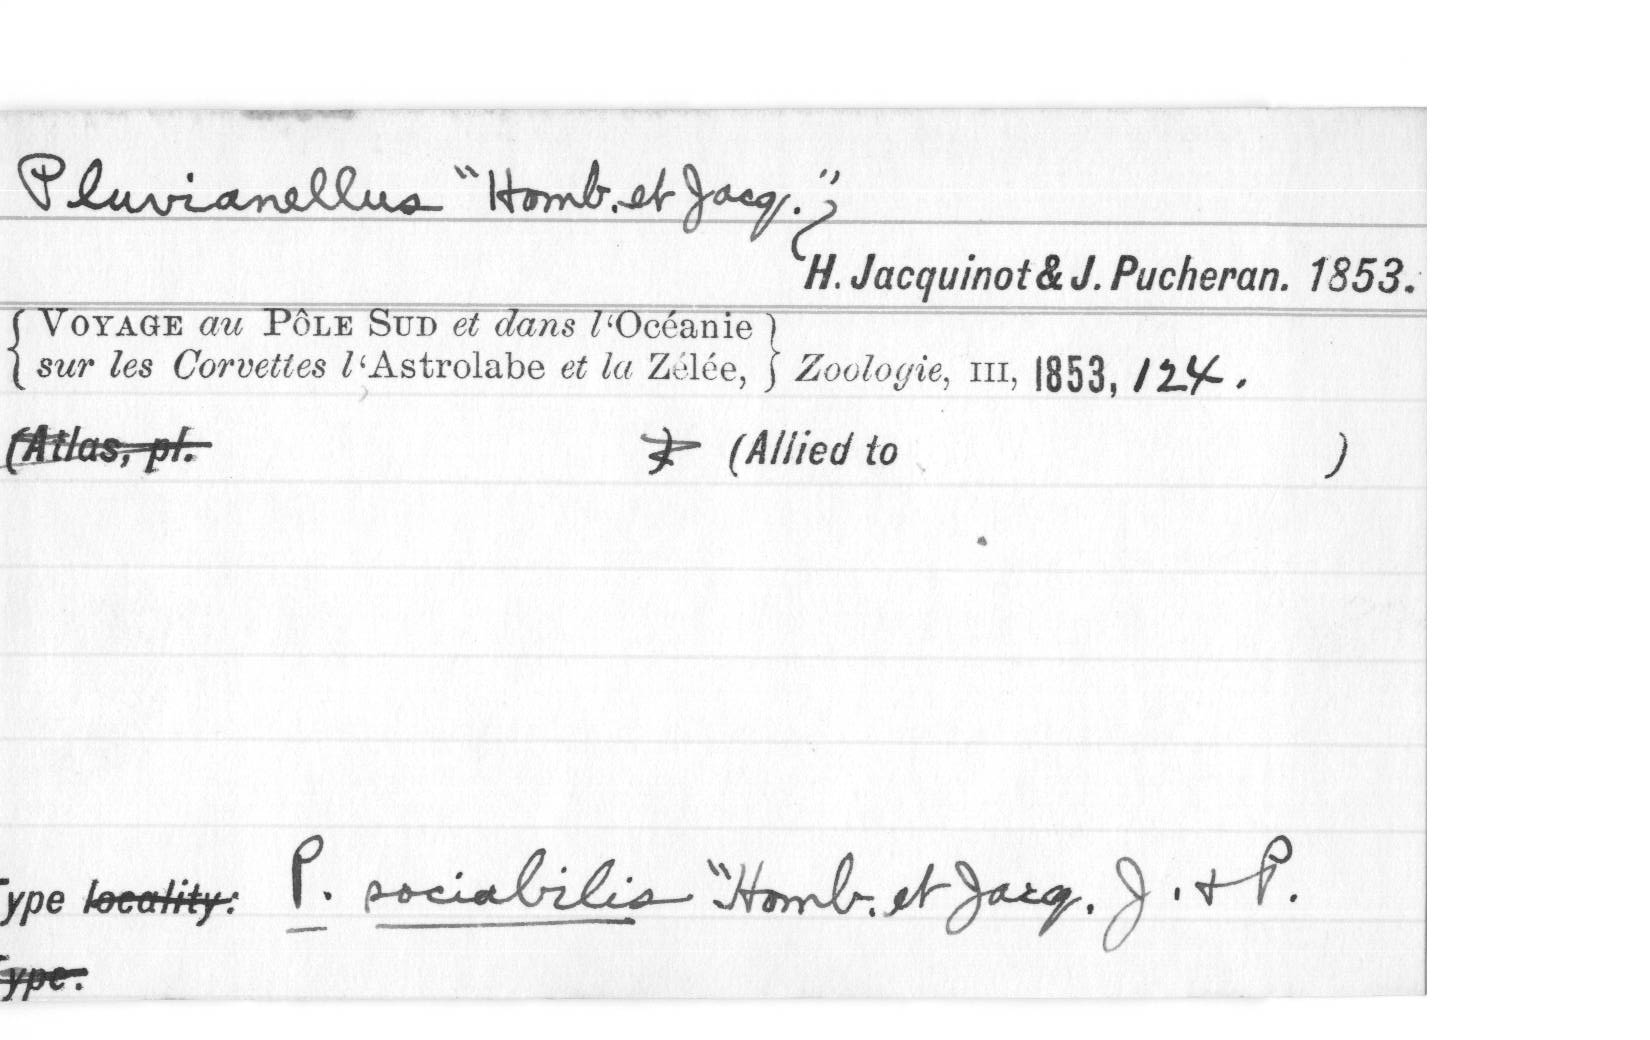 Pluvianellus "Homb. et Jacq.",
H. Jacquinot & J. Pucheran. 1853.
{ VOYAGE au PÔLE SUD et dans l‘Océanie }
{ sur les Corvettes l‘Astrolabe et la Zélée, } Zoologie, III, 1853, 124.
(Atlas, pl. ) (Allied to )
Type locality: P. sociabilis "Homb. et Jacq. J. & P.
Type: